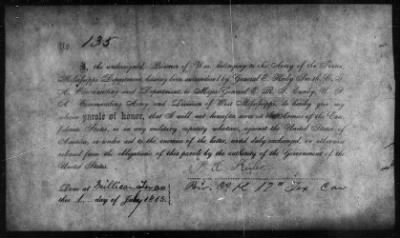 No. 135
I, the undersigned, Prisoner of War, belonging to the Army of the Trans-
Mississippi Department, having been surrendered by General E. Kirby Smith, C. S.
A., Commanding said Department, to Major General E. R. S. Canby, U. S.
A., Commanding Army and Division of West Mississippi, do hereby give my
solemn parole of honor, that I will not hereafter serve in the Armies of the Con-
federate States, or in any military capacity whatever, against the United States of
America, or render aid to the enemies of the latter, until duly exchanged, or otherwise
released from the obligations of this parole by the authority of the Government of the
United States.
Done at Millican Texas
17" Tex Cav
this 1 day of July 1865.